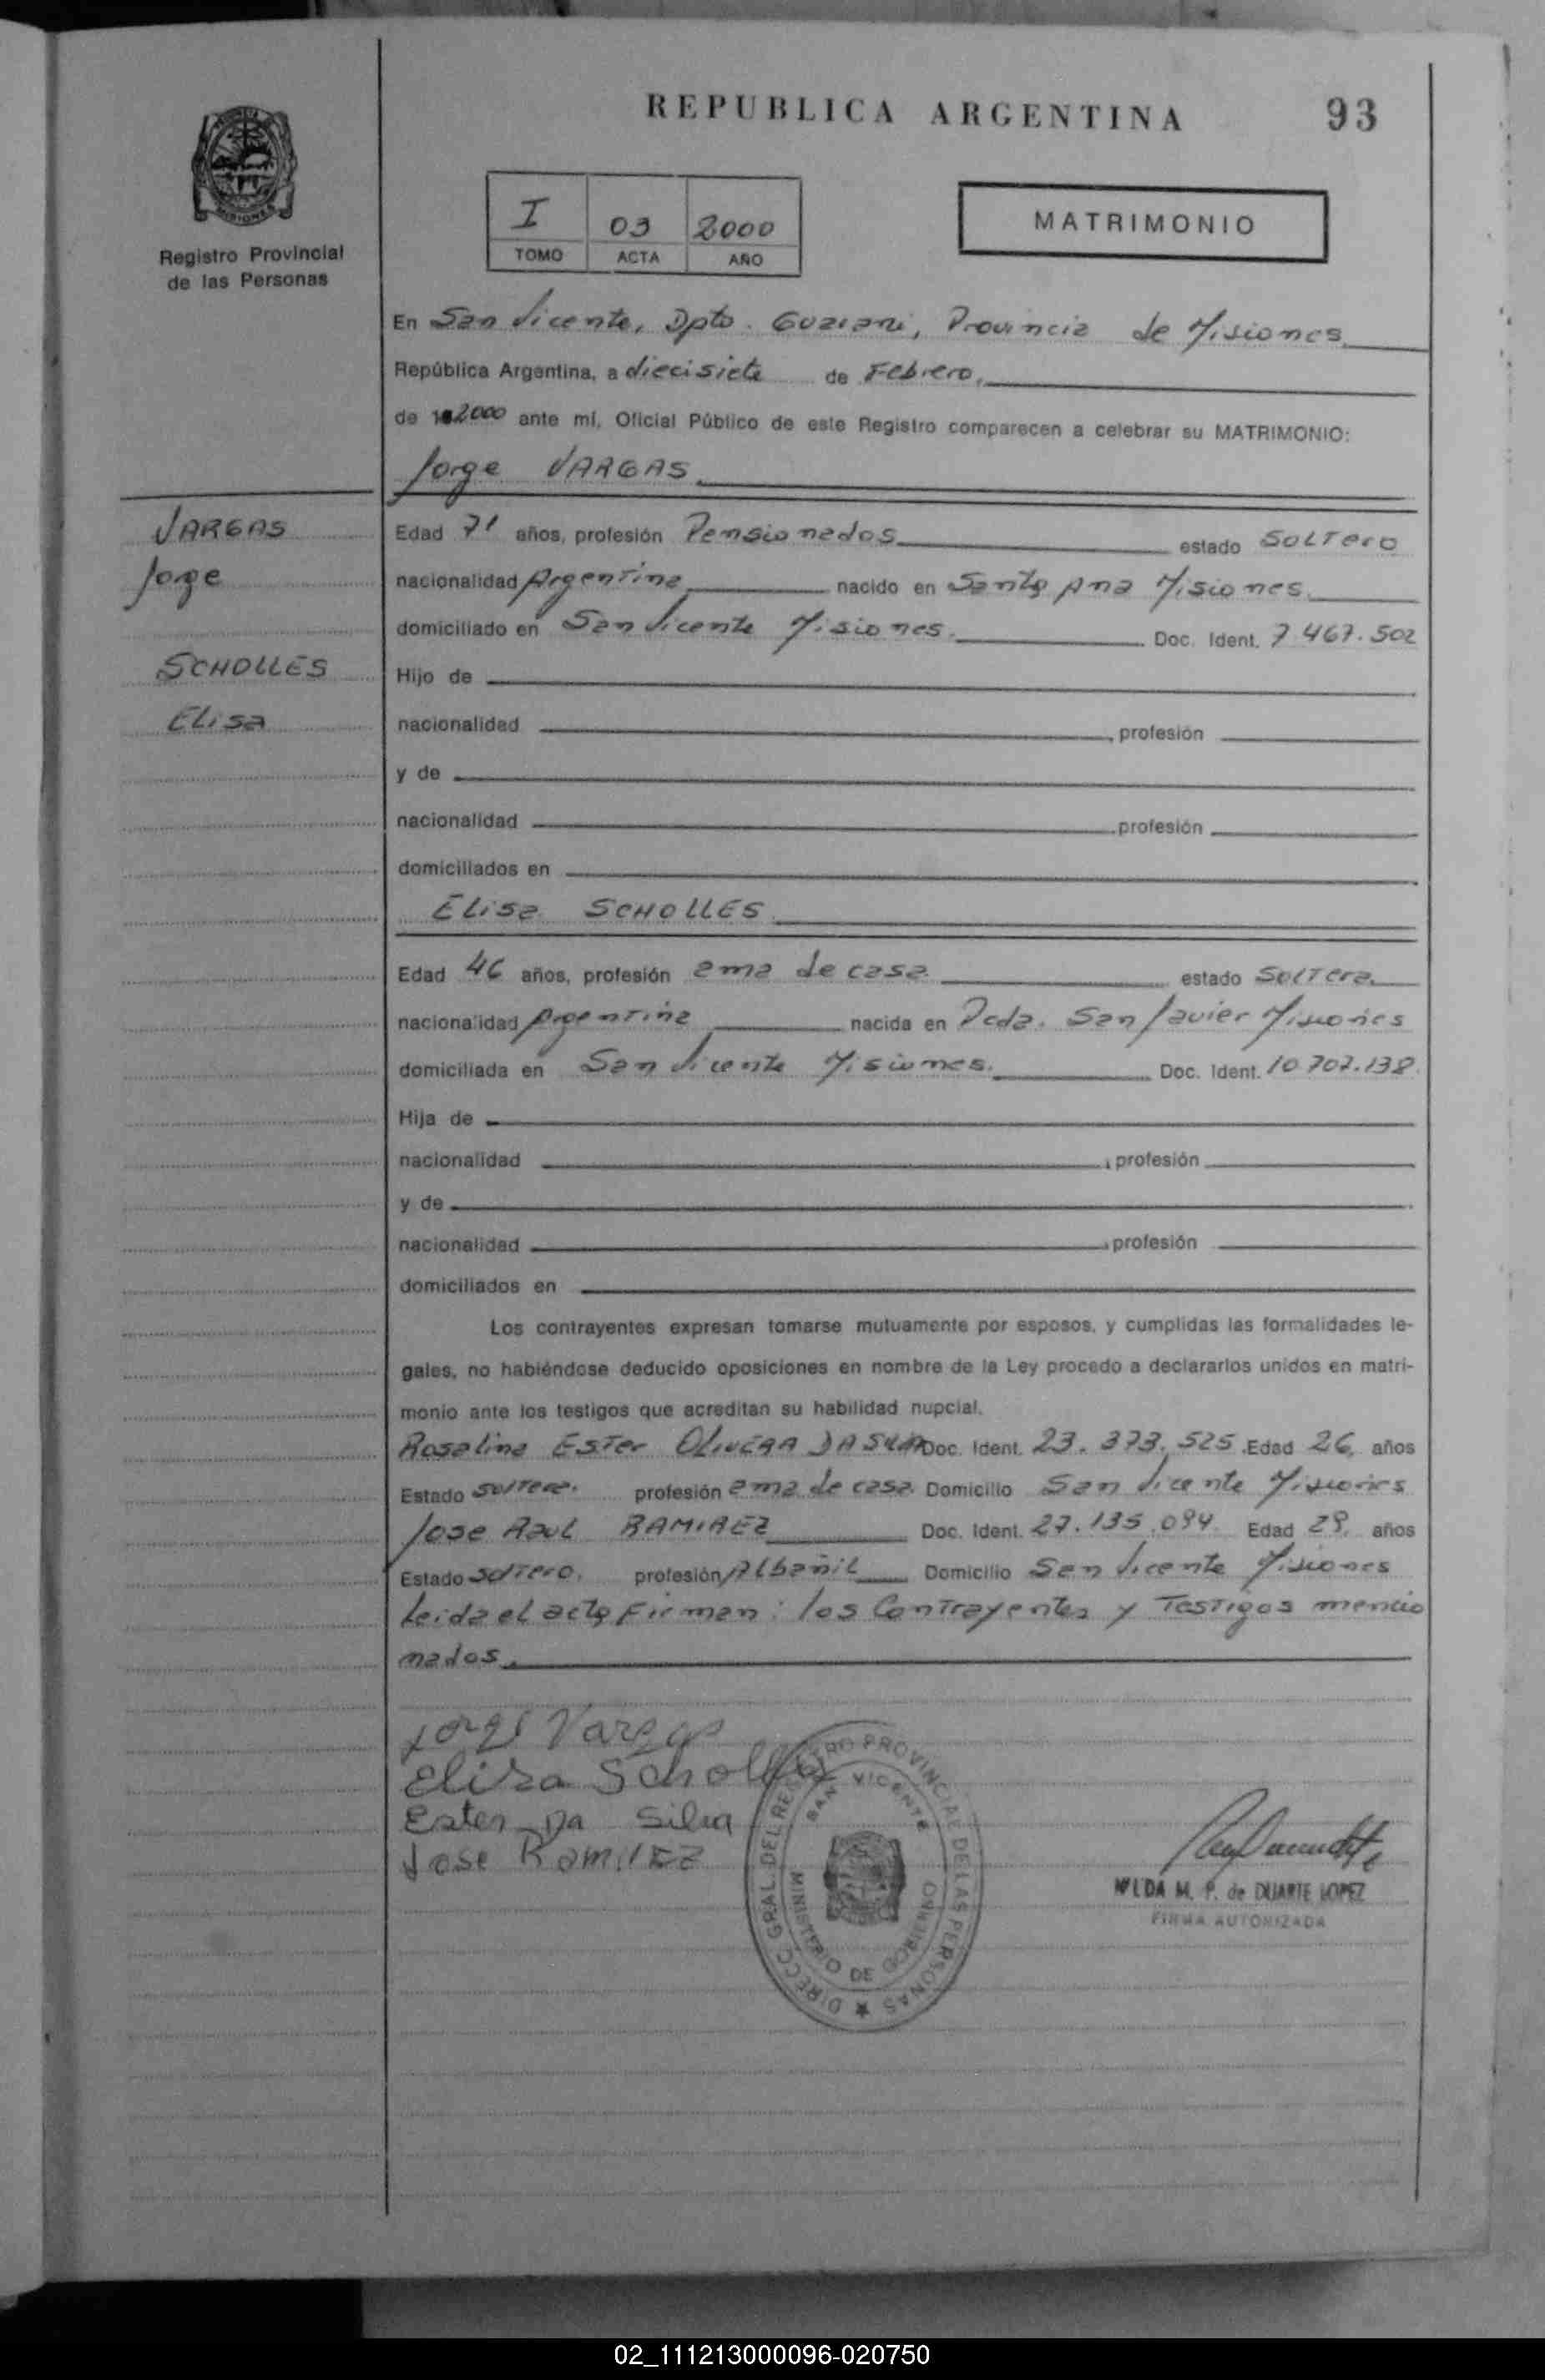 REPUBLICA ARGENTINA
93
MISIONES
Registro Provincial
de las Personas
I 03 2000
TOMO ACTA AÑO
MATRIMONIO
En San Vicente, Dpto. Guarani, Provincia de Misiones,
República Argentina, a diecisiete de Febrero,
de 2000 ante mí, Oficial Público de este Registro comparecen a celebrar su MATRIMONIO:
Jorge VARGAS
VARGAS
Jorge
SCHOLLES
Elisa
Edad 71 años, profesión Pensionados estado Soltero
nacionalidad Argentina nacido en Santa Ana Misiones
domiciliado en San Vicente Misiones. Doc. Ident. 7.467.502
Hijo de
nacionalidad , profesión
y de
nacionalidad profesión
domiciliados en
Elisa SCHOLLES
Edad 46 años, profesión ama de casa. estado Soltera.
nacionalidad Argentina nacida en Pcda. San Javier Misiones
domiciliada en San Vicente Misiones. Doc. Ident. 10.707.138
Hija de
nacionalidad , profesión
y de
nacionalidad , profesión
domiciliados en
Los contrayentes expresan tomarse mutuamente por esposos, y cumplidas las formalidades le-
gales, no habiéndose deducido oposiciones en nombre de la Ley procedo a declararlos unidos en matri-
monio ante los testigos que acreditan su habilidad nupcial.
Rosalina Ester OLIVERA DA SILVA Doc. Ident. 23.373.525 Edad 26, años
Estado soltera. profesión ama de casa. Domicilio San Vicente Misiones
Jose Raul RAMIREZ Doc. Ident. 27.135.094 Edad 29, años
Estado soltero. profesión Albañil Domicilio San Vicente Misiones
Leida el acta Firman: los Contrayentes y Testigos mencio
nados.
Jorge Vargas
Elisa Scholles
Ester Da Silva
Jose Ramirez
DIRECC. GRAL. DEL REGISTRO PROVINCIAL DE LAS PERSONAS
SAN VICENTE
MINISTERIO DE GOBIERNO
M. P. de DUARTE LOPEZ
FIRMA AUTORIZADA
02_111213000096-020750